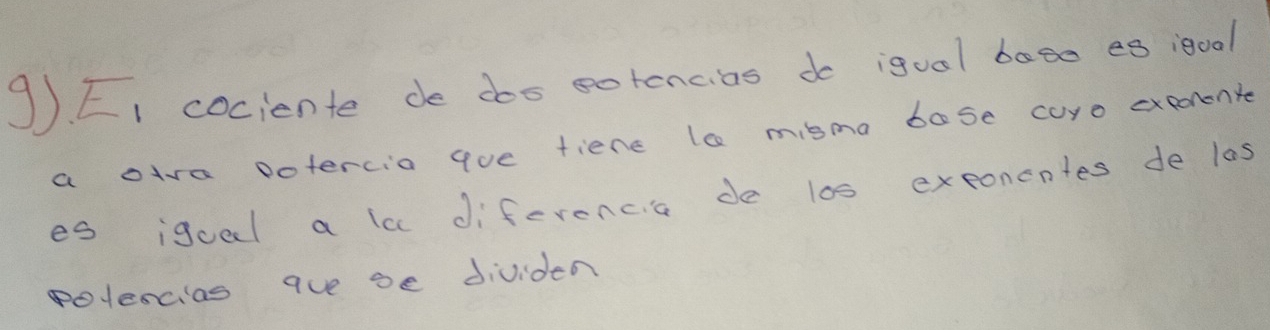 g). El cociente de dos potencias de igual base es igual
a otra potencia que tiene la misma base cuyo exponente
es igual a la diferencia de los exponentes de las
potencias que se dividen